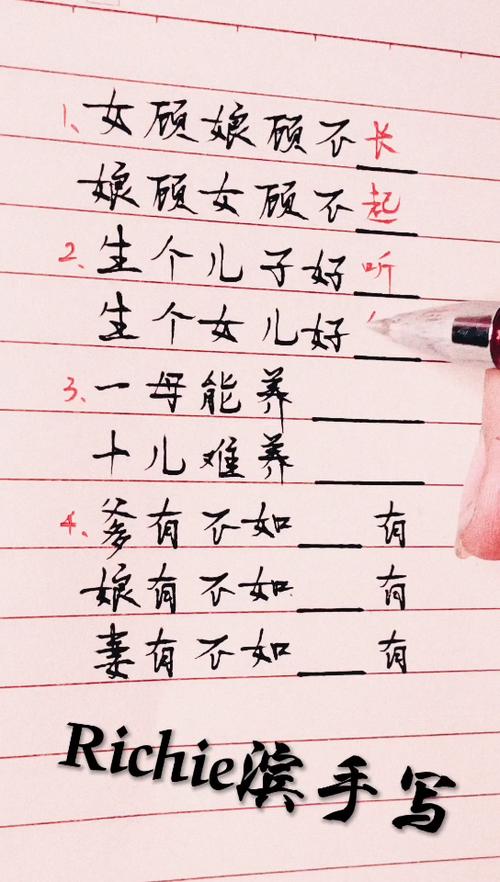 1、女顾娘顾不长
娘顾女顾不起
2、生个儿子好听
生个女儿好
3、一母能养
十儿难养
4、爹有不如 有
娘有不如 有
妻有不如 有
Richie滨手写